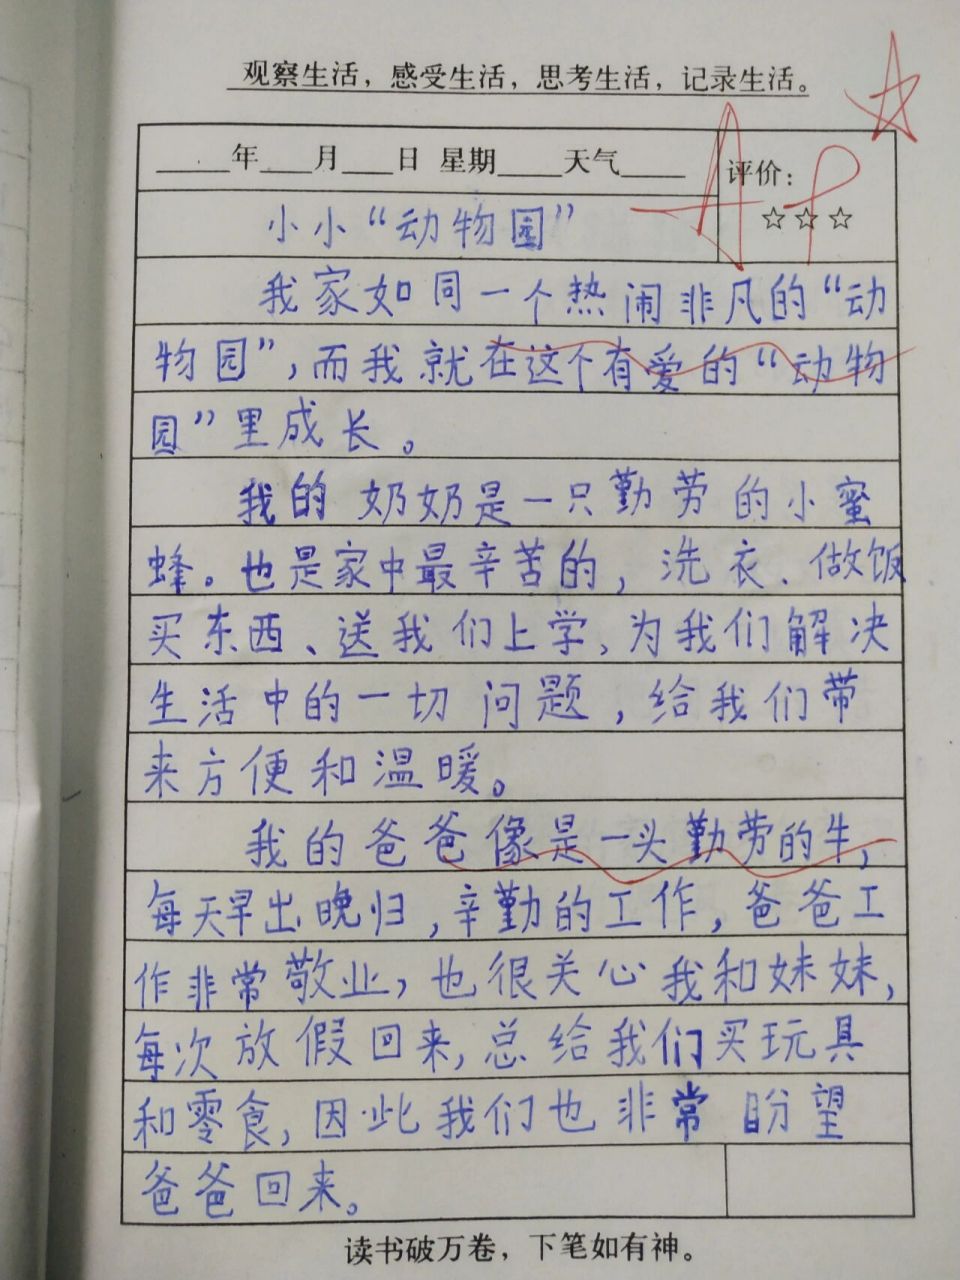 观察生活，感受生活，思考生活，记录生活。
____年____月____日 星期____天气____ 评价：
A+
☆☆☆
小小“动物园”
我家如同一个热闹非凡的“动
物园”，而我就在这个有爱的“动物
园”里成长。
我的奶奶是一只勤劳的小蜜
蜂。也是家中最辛苦的，洗衣、做饭
买东西、送我们上学，为我们解决
生活中的一切问题，给我们带
来方便和温暖。
我的爸爸像是一头勤劳的牛，
每天早出晚归，辛勤的工作，爸爸工
作非常敬业，也很关心我和妹妹，
每次放假回来，总给我们买玩具
和零食，因此我们也非常盼望
爸爸回来。
读书破万卷，下笔如有神。